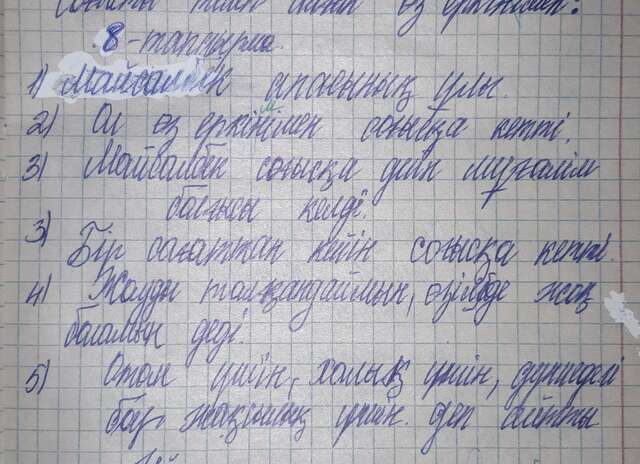 соғысты өз еркімен.
8-тапсырма.
1) Майсалбек апаеның ұлы.
2) Ол өз еркінмен соғысқа кетті.
3) Майсалбек соғысқа дейін мұғалім
болғысы келді.
3) Бір сағаттан кейін соғысқа кетті.
4) Жауды талқандаймын, өзім де жоқ
боламын деді.
5) Отан үшін, халық үшін, дүниедегі
бар жақсылық үшін деп айтты